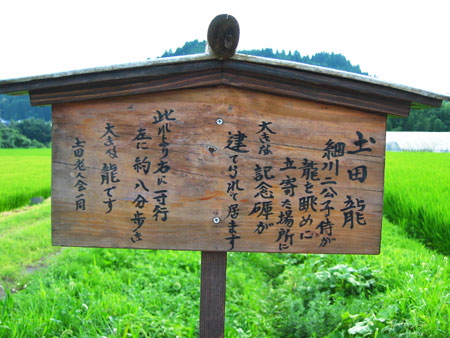 圡田 龍
細川二公子侍が
龍を眺めに
立寄た場所に
大きな記念碑が
建てられて居ます
此れより右に一寸行
左に約八分歩は
大きな龍です
土田老人会一同